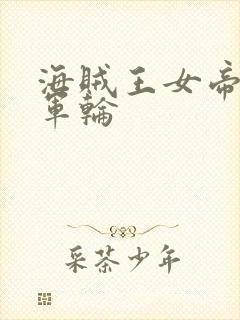 海贼王女帝
軍輪
采茶少年